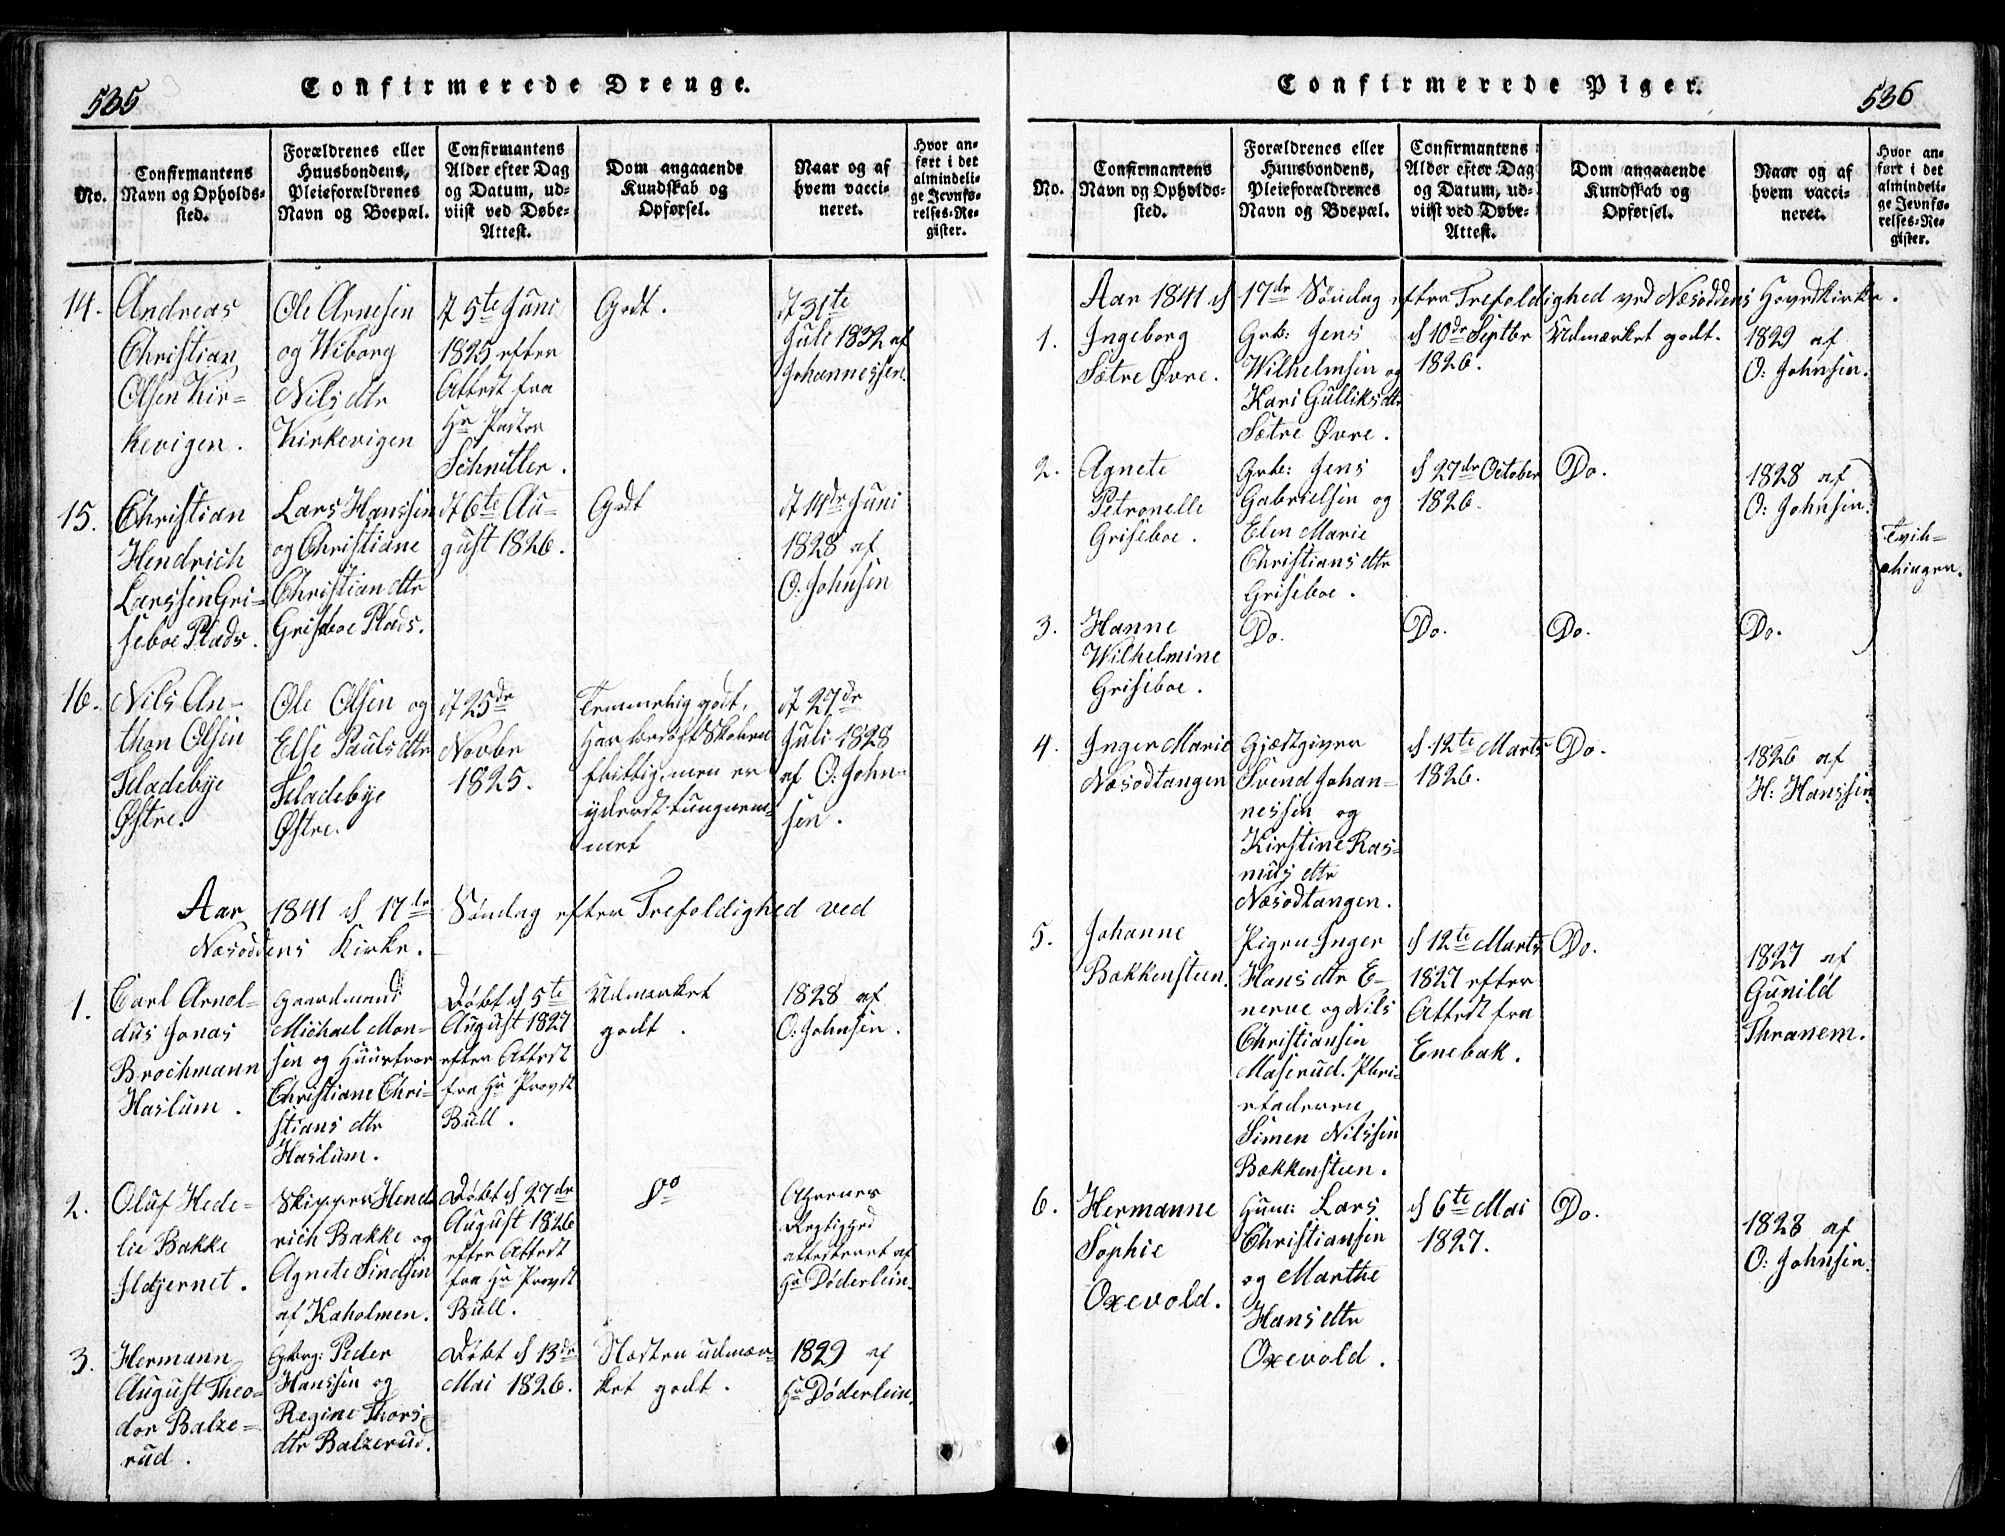 535
Confirmerede Drenge.
No.
Confirmantens
Navn og Opholds-
sted.
Forældrenes eller
Huusbondens,
Pleieforældrenes
Navn og Boepæl.
Confirmantens
Alder efter Dag
og Datum, ud-
viist ved Døbe-
Attest.
Dom angaaende
Kundskab og
Opførsel.
Naar og af
hvem vacci-
neret.
Hvor an-
ført i det
almindeli-
ge Jevnfø-
relses-Re-
gister.
14.
Andreas
Christian
Olsen Kir-
kevigen.
Ole Arnesen
og Wiborg
Nilsdtr
Kirkevigen
d 5te Juni
1825 efter
Attest fra
Hr Pastor
Schnitler.
Godt.
d 31te
Juli 1832 af
Johannessen.
15.
Christian
Hendrich
Larssen Gri-
seboe Plads.
Lars Hanssen
og Christiane
Christiandtr
Griseboe Plads.
d 6te Au-
gust 1826.
Godt
d 14de Juni
1828 af
O. Johnsen
16.
Nils An-
thon Olsen
Fladebye
Østre.
Ole Olsen og
Else Paulsdtr
Fladebye
Østre.
d 25de
Novbr
1825.
Temmelig godt,
Har besøgt Skolen
flittig, men er
yderst tungnem-
met
d 27de
Juli 1828
af O: John-
sen.
Aar 1841 d 17de Søndag efter Trefoldighed ved
Næsoddens Kirke.
1.
Carl Arnol-
dus Jonas
Brochmann
Haslum.
Gaardmand
Michael Mon-
sen og Huustroe
Christiane Chri-
stiansdtr
Haslum.
Døbt d 5te
August 1827
efter Attest
fra Hr Provst
Bull.
Udmærket
godt.
1828 af
O: Johnsen.
2.
Oluf Hede-
lie Bakke
Fldjernet.
Skipper Hend
rich Bakke og
Agnete Sindsen
af Kaholmen.
Døbt d 27de
August 1826
efter Attest
fra Hr Provst
Bull.
Do
Rigtighed
attesteret af
Hr Døderlein.
3.
Hermann
August Theo-
dor Balze-
rud.
Gbrg: Peder
Hanssen og
Regine Thors
dtr Balzerud.
Døbt d 13de
Mai 1826.
Næsten udmær-
ket godt.
1829 af
Hr Døderlein.
536
Confirmerede Piger.
No.
Confirmantens
Navn og Opholds-
sted.
Forældrenes eller
Huusbondens,
Pleieforældrenes
Navn og Boepæl.
Confirmantens
Alder efter Dag
og Datum, ud-
viist ved Døbe-
Attest.
Dom angaaende
Kundskab og
Opførsel.
Naar og af
hvem vacci-
neret.
Hvor an-
ført i det
almindeli-
ge Jevnfø-
relses-Re-
gister.
Aar 1841 d 17de Søndag efter Trefoldighed ved Næsoddens Hovedkirke.
1.
Ingeborg
Sætre Øvre.
Grb: Jens
Wilhelmsen og
Kari Gulliksdtr
Sætre Øvre.
d 10de Septbr
1826.
Udmærket godt.
1829 af
O: Johnsen.
2.
Agnete
Petronelle
Griseboe.
Grb: Jens
Gabrielsen og
Elen Marie
Christiansdtr
Griseboe.
d 27de October
1826.
Do.
1828 af
O: Johnsen.
Tvil-
linger.
3.
Hanne
Wilhelmine
Griseboe.
Do.
Do.
Do.
Do.
4.
Inger Marie
Næsodtangen
Gjæstgiver
Svend Johan-
nessen og
Kirstine Ras-
musdtr
Næsodtangen.
d 12te Marts
1826.
Do.
1826 af
H: Hanssen
5.
Johanne
Bakkensteen.
Pigen Inger
Hansdtr E-
nerve og Nils
Christiansen
Maserud. Plei-
efaderen
Simen Nilssen
Bækkensteen.
d 12te Marts
1827 efter
Attest fra
Enebak.
Do.
1827 af
Gunild
Thranem.
6.
Hermanne
Sophie
Oxevold.
Huus: Lars
Christiansen
og Marthe
Hansdtr
Oxevold.
d 6te Mai
1827.
Do.
1828 af
O: Johnsen.